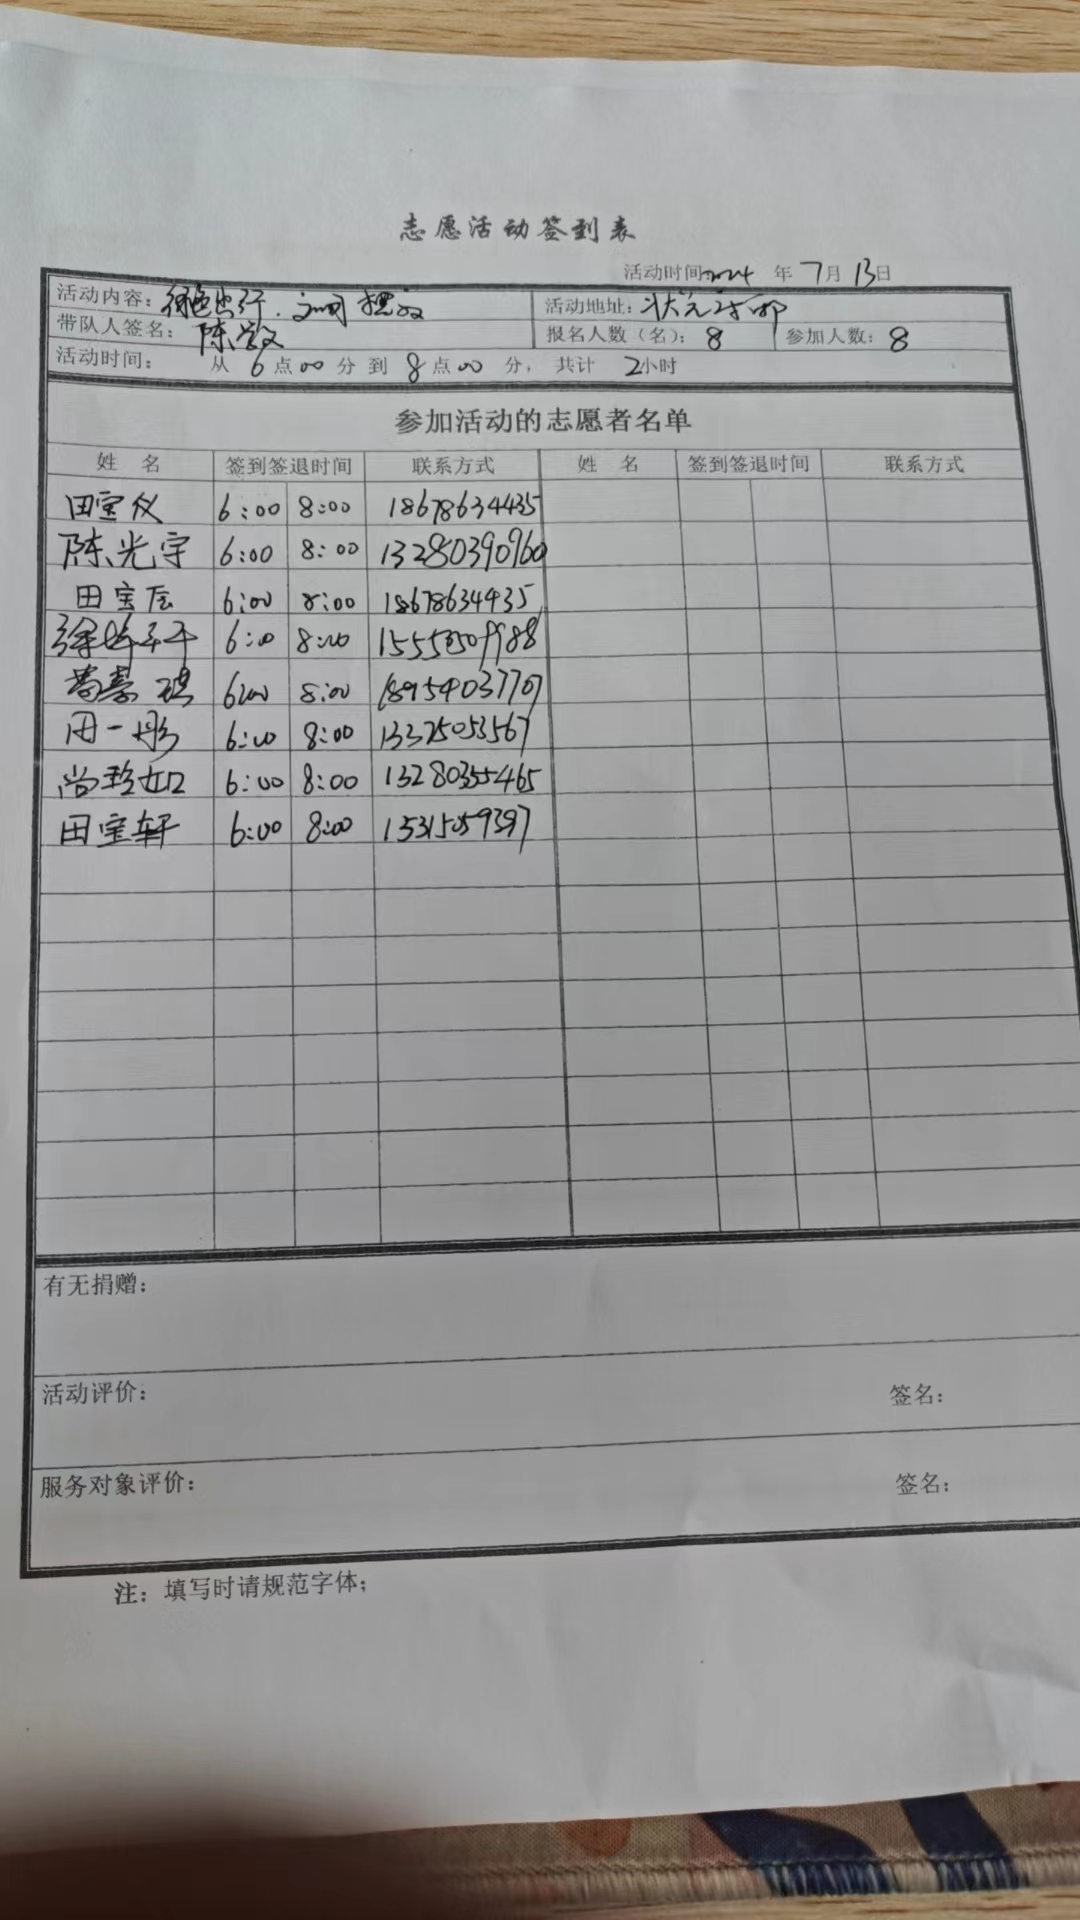 志愿活动签到表
活动时间 2024 年 7 月 13 日
活动内容：绿色出行.文明摆放 活动地址：状元府邸
带队人签名：陈学文 报名人数（名）：8 参加人数：8
活动时间： 从 6 点 00 分 到 8 点 00 分， 共计 2小时
参加活动的志愿者名单
姓 名 签到签退时间 联系方式 姓 名 签到签退时间 联系方式
田宝仪 6:00 8:00 18678634435
陈光宇 6:00 8:00 13280390960
田宝辰 6:00 8:00 18678634435
徐 6:00 8:00
琪 6:00 8:00 18954037707
田一彤 6:00 8:00 13325053567
尚珍如 6:00 8:00 13280355465
田宝轩 6:00 8:00 15315059397
有无捐赠：
活动评价： 签名：
服务对象评价： 签名：
注：填写时请规范字体；